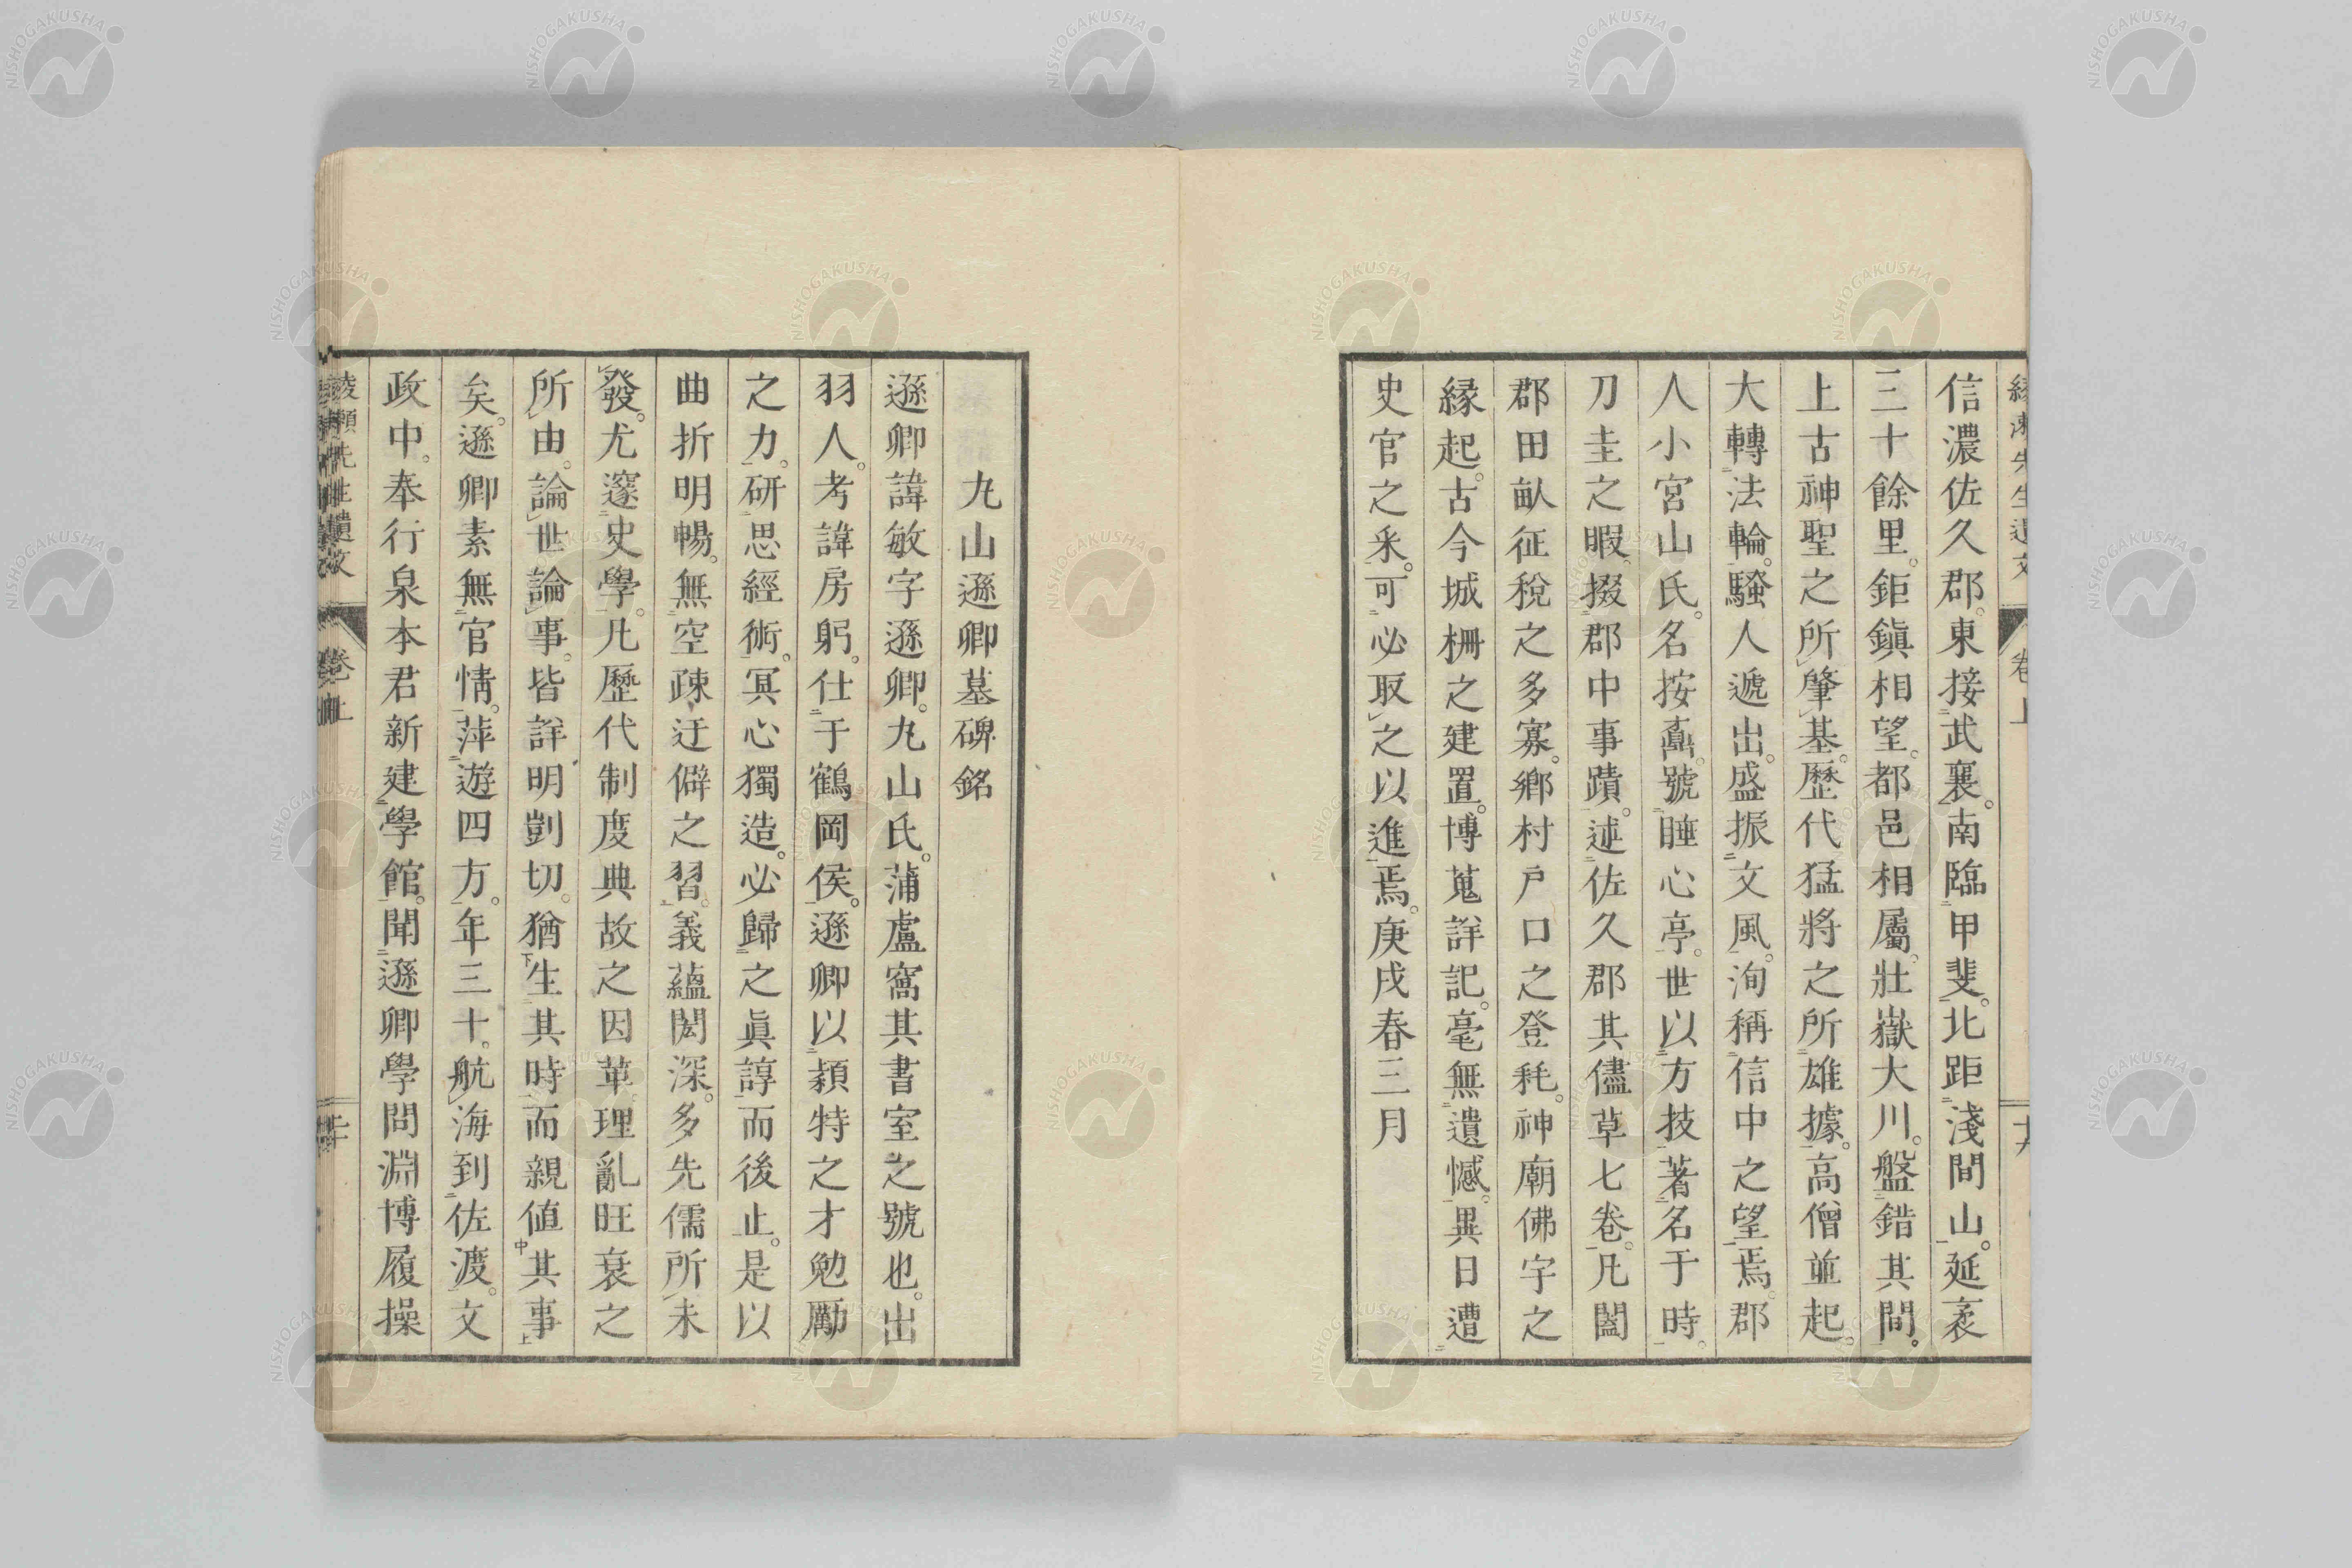 信濃佐久郡。東接武襄。南臨甲斐。北距淺間山。延袤
三十餘里。鉅鎭相望。都邑相屬。壯嶽大川。盤錯其間。
上古神聖之所肇基。歷代猛將之所雄據。高僧並起。
大轉法輪。騷人遞出。盛振文風。洵稱信中之望焉。郡
人小宮山氏。名按靐。號睡心亭。世以方技著名于時。
刀圭之暇。掇郡中事蹟。述佐久郡其儘草七卷。凡闔
郡田畝征稅之多寡。鄉村戶口之登耗。神廟佛宇之
縁起。古今城柵之建置。博蒐詳記。毫無遺憾。異日遭
史官之釆。可必取之以進焉。庚戌春三月
九山遜卿墓碑銘
遜卿諱敏字遜卿。九山氏。蒲盧窩其書室之號也。出
羽人。考諱房躬。仕于鶴岡侯。遜卿以穎特之才勉勵
之力。研思經術。冥心獨造。必歸之眞諄而後止。是以
曲折明暢。無空疎迂僻之習。義蘊閎深。多先儒所未
發。尤邃史學。凡歷代制度典故之因革。理亂旺衰之
所由。論世論事。皆詳明剴切。猶生其時而親値其事
矣。遜卿素無官情。萍遊四方。年三十。航海到佐渡。文
政中。奉行泉本君新建學館。聞遜卿學問淵博履操
綾瀨先生遺文 卷上